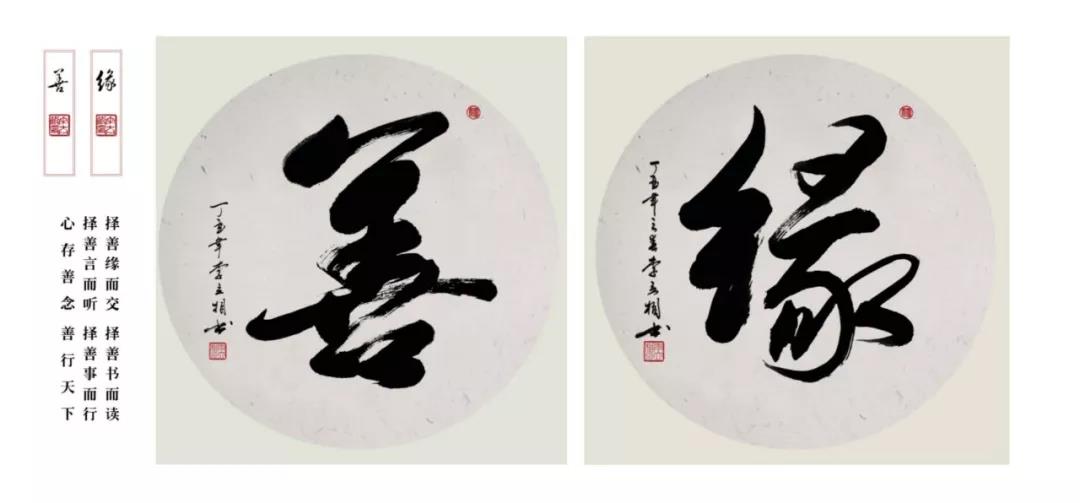 缘
善
择善缘而交 择善书而读
择善言而听 择善事而行
心存善念 善行天下
善
丁酉年李
缘
丁酉年之春李